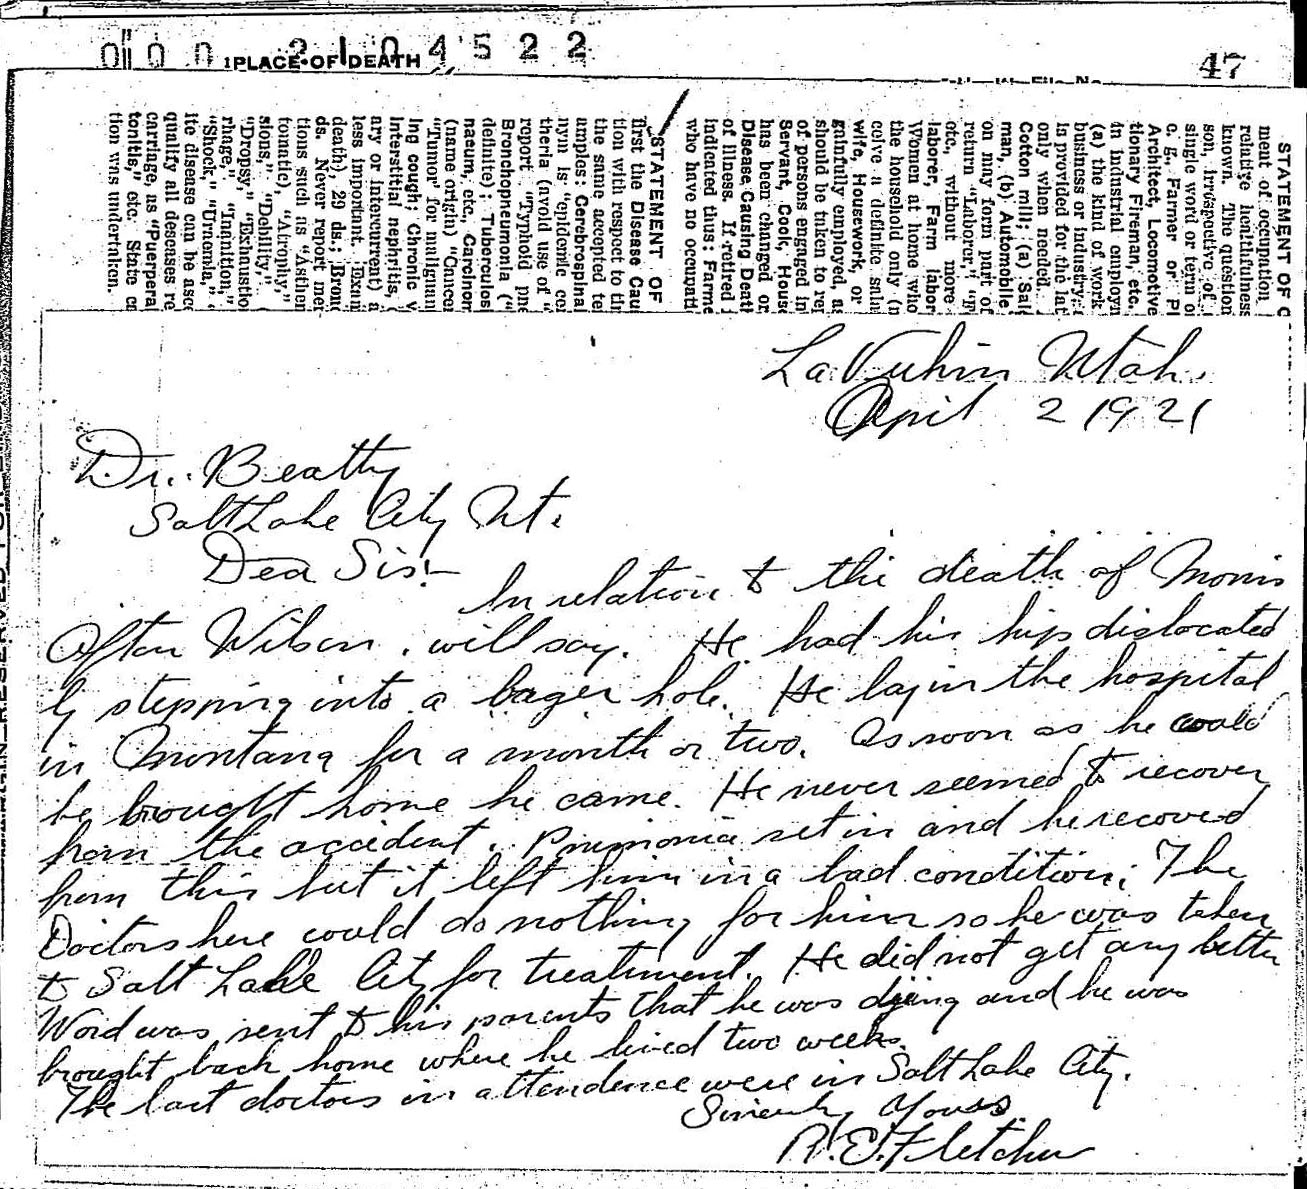 000 2104522
PLACE OF DEATH
47
STATEMENT OF
ment of occupation
relative healthfulness
known. The question
son, irrespective of
single word or term o
e. g., Farmer or Pl
Architect, Locomotive
tionary Fireman, etc.
in industrial employm
(a) the kind of work
business or industry
is provided for the lat
only when needed.
Cotton mill; (a) Sale
man, (b) Automobile
on may form part of
return "Laborer," "F
etc., without more
laborer, Farm labor
Women at home who
the household only (n
ceive a definite sala
wife, Housework, or
gainfully employed, as
should be taken to rep
of persons engaged in
Servant, Cook, House
has been changed or
Disease Causing Death
of illness. If retired
indicated thus: Farme
who have no occupati
STATEMENT OF
first the Disease Cau
tion with respect to tim
the same accepted te
amples: Cerebrospinal
nym is "epidemic cer
theria (avoid use of "
report "Typhoid pne
Bronchopneumonia ("
definite); Tuberculos
naeum, etc., Carcinom
(name origin) "Cancer
"Tumor" for malignan
ing cough; Chronic v
interstitial nephritis,
ary or intercurrent) a
less important. Exam
death), 29 ds.; Bron
ds. Never report mer
tions such as "Asthen
tomatic), "Atrophy,"
sions," "Debility,"
"Dropsy," "Exhaustio
rhage," "Inanition,"
"Shock," "Uraemia,"
ite disease can be asce
qualify all deseases re
carriage, as "Puerperal
tonitis," etc. State ca
tion was undertaken.
LaVerkin Utah.
April 2 1921
Dr. Beatty
Salt Lake City Ut.
Dea Sir:-
In relation to the death of Morris
Afton Wilson, will say. He had his hip dislocated
by stepping into a bager hole. He lay in the hospital
in Montana for a month or two. As soon as he could
be brought home he came. He never seemed to recover
from the accident. Pnumonia set in and he recoved
from this but it left him in a bad condition; The
Doctors here could do nothing for him so he was taken
to Salt Lake City for treatment. He did not get any better
Word was sent to his parents that he was dying and he was
brought back home where he lived two weeks.
The last doctors in attendence were in Salt Lake City.
Sincerely Yours
R. E. Fletcher